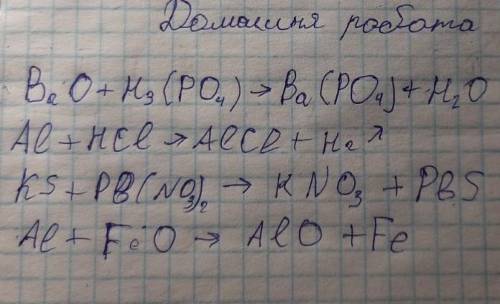 Домашня робота
BaO + H₃(PO₄) → Ba(PO₄) + H₂O
Al + HCl → AlCl + H₂↗
KS + PB(NO₃)₂ → KNO₃ + PbS
Al + FeO → AlO + Fe